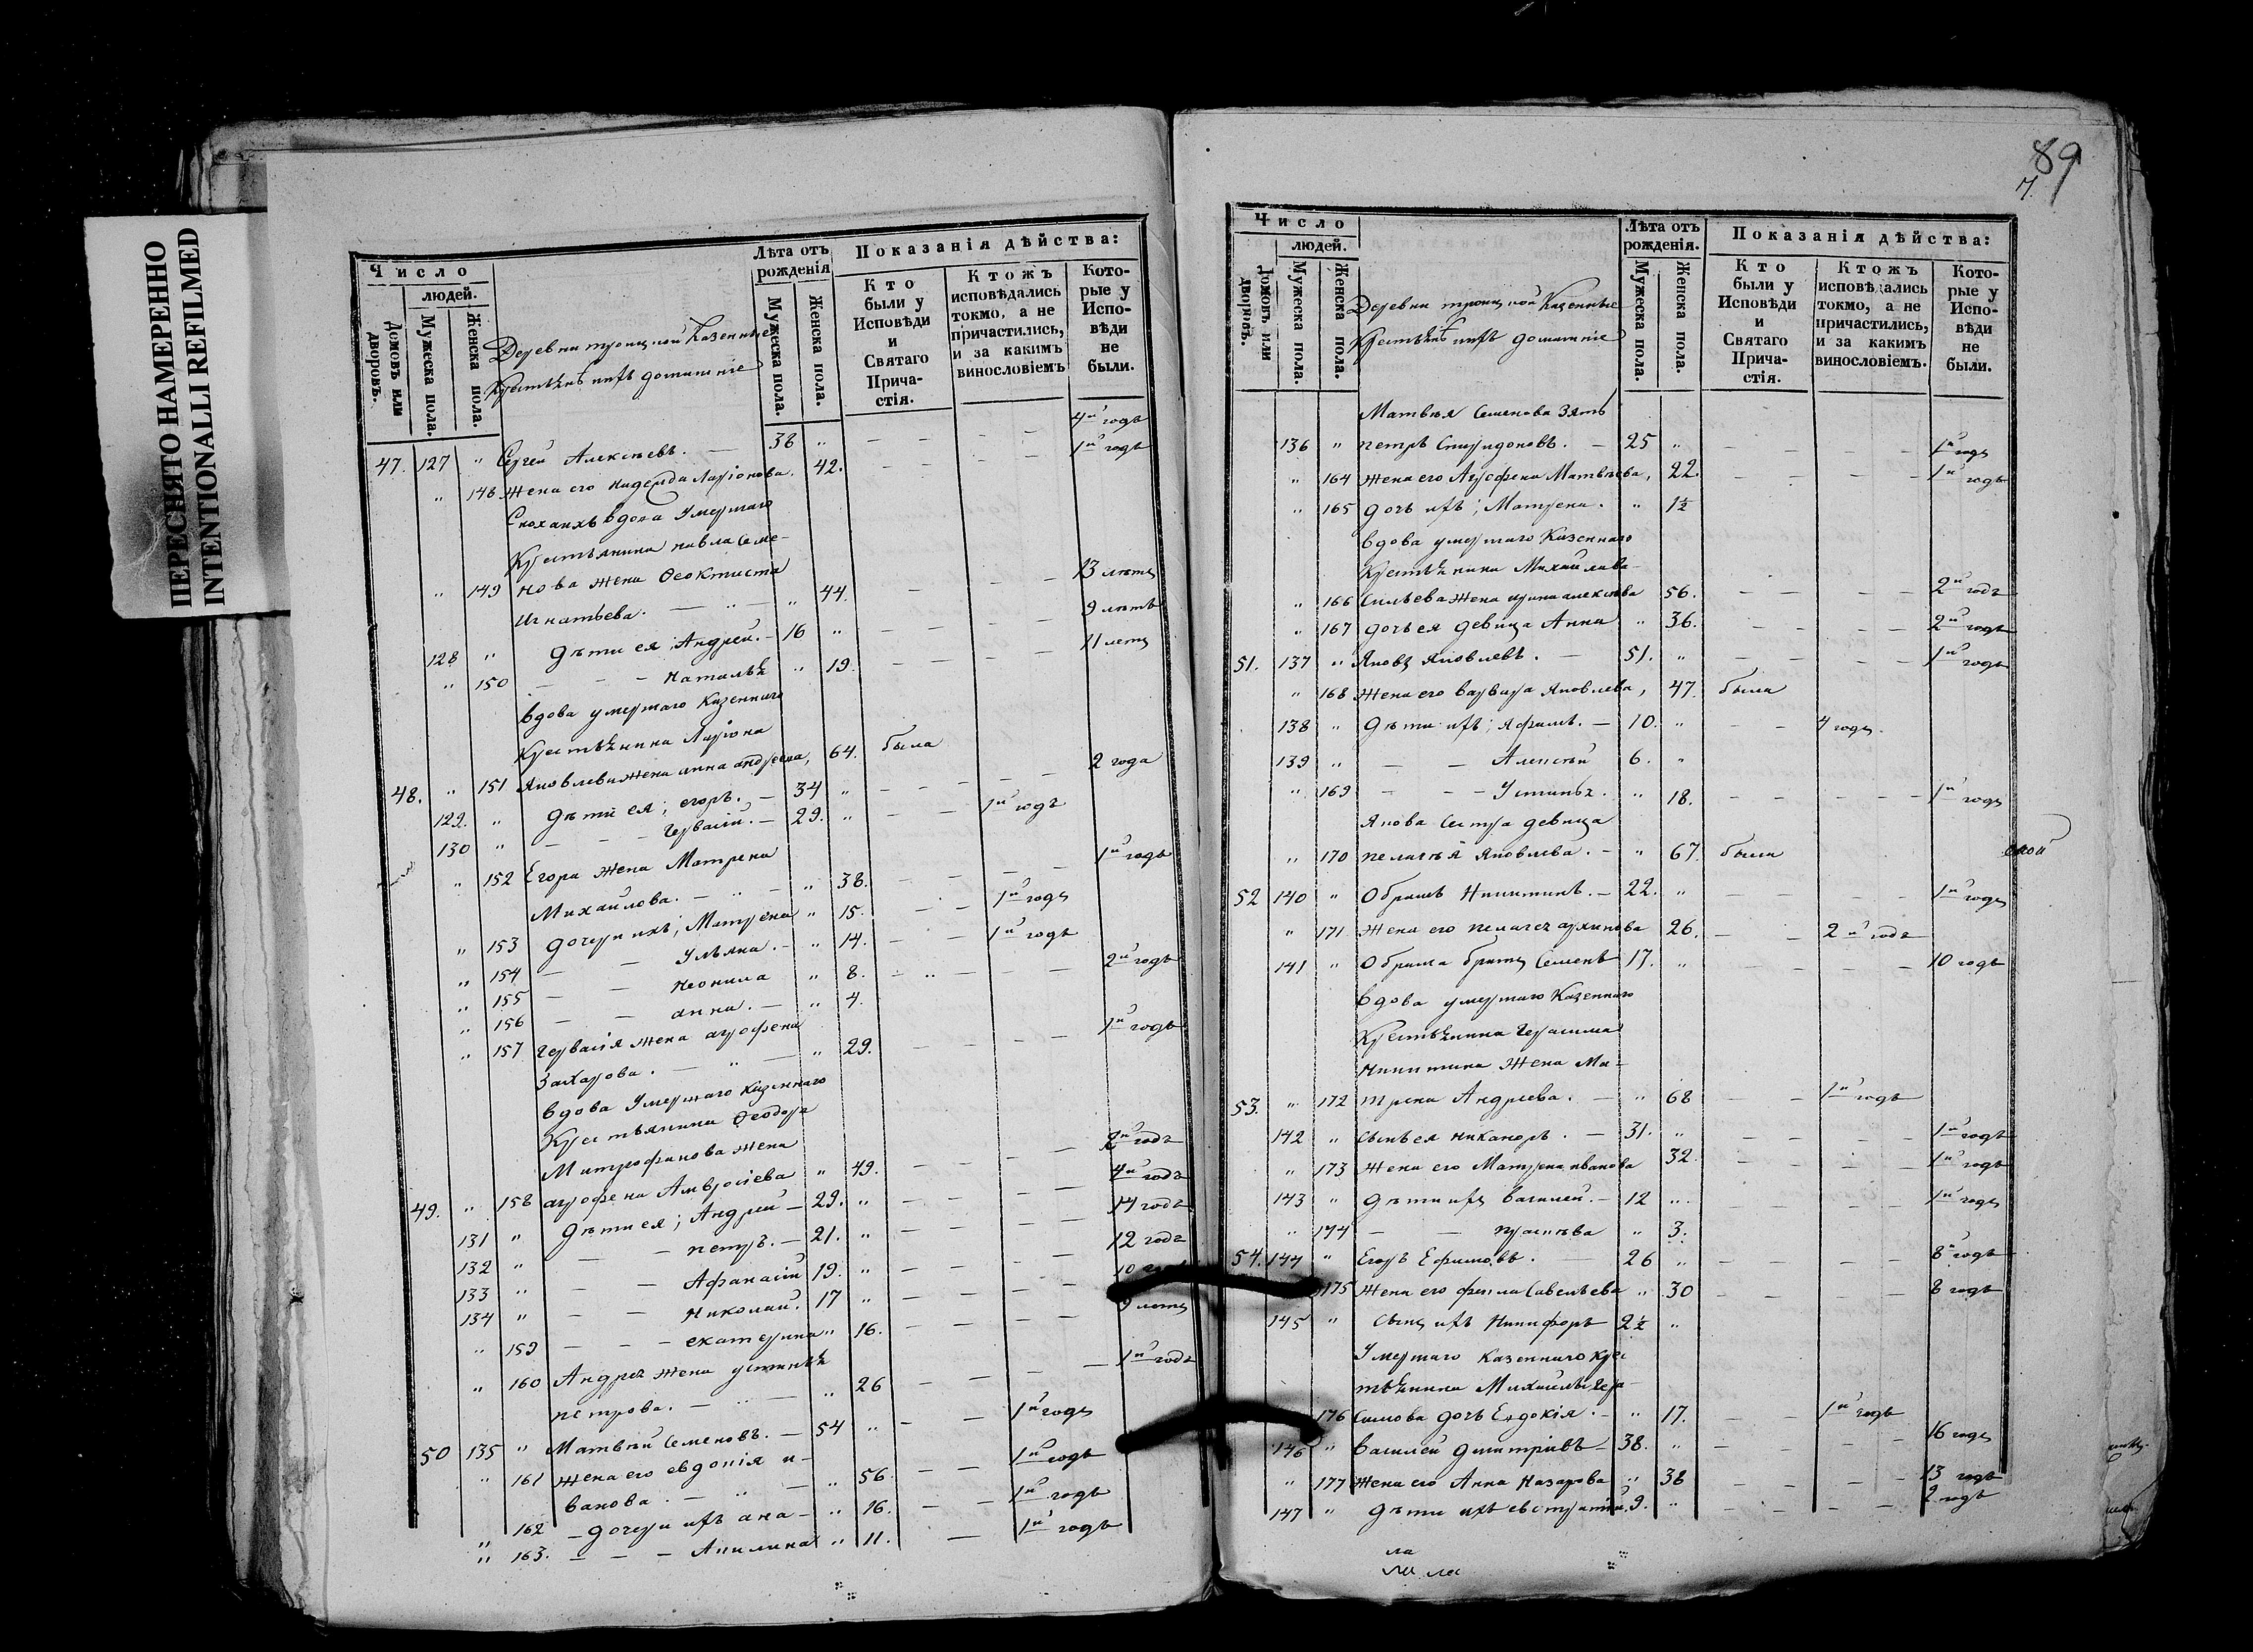 ПЕРЕСНЯТО НАМЕРЕННО
INTENTIONALLI REFILMED
Число
людей.
Домовъ или дворовъ.
Мужеска пола.
Женска пола.
Деревни троицкой Казенные
Крестьяне ихъ домашніе
Лѣта отъ рожденія
Мужеска пола.
Женска пола.
Показанія дѣйства:
Кто были у Исповѣди и Святаго Причастія.
Ктожъ исповѣдались токмо, а не причастились, и за какимъ винословіемъ
Которые у Исповѣди не были.
47. 127 " Сергей Алексѣевъ. — 38 " — — — — 4й годъ
" 148 Жена его надежда Ларіонова. 42. — — — — 1й годъ
Сноха ихъ вдова Умершаго
Крестьянина павла Семе-
" 149 нова жена Феоктиста
Игнатьева. — " — " 44. — — — 13 лѣтъ
128 " дѣти ея; Андрей. — 16 " — — — — 9 лѣтъ
" 150 — — — Наталья " 19. — — — — 11 летъ
вдова умершаго Казеннаго
Крестьянина Ларіона
48. " 151 Яковлева жена анна андреева, 64. была
129. " дѣти ея; егоръ. — 34 " — — — — 2 года
130 " — — Гервасій. — 29. " — — 1й годъ
" 152 Егора жена Матрена
Михайлова. — " — " 38. — — — — 1й годъ
" 153 дочери ихъ; Матрена " 15. — — 1й годъ
" 154 — — Ульяна. — " 14. — — 1й годъ
" 155 — — Неонила " 8. — " — — — 2й годъ
" 156 — — анна. — " 4.
" 157 Гервасія жена агрофена
Захарова. — " — " 29. — — — — 1й годъ
вдова Умершаго казеннаго
Крестьянина Феодора
Митрофанова жена
49. " 158 агрофена Амвросіева " 49. — — — — 2й годъ
131 " дѣти ея; Андрей — 29. " — — — — 4й годъ
132 " — — петръ. — 21. " — — — — 14 годъ
133 " — — Афанасій 19. " — — — — 12 годъ
134 " — — Николай. 17 " — — — — 10
" 159 — — — екатерина " 16. — — — — 9 летъ
" 160 Андрея жена устинья
петрова. — " — " 26 — — — — 1й годъ
50 135 " Матвѣй Семеновъ. — 54 " — — 1й годъ
" 161 Жена его евдокія и-
ванова. — " — " 56. — — 1й годъ
" 162 — дочери ихъ ана — " 16. — — 1й годъ
" 163. — — — Акилина " 11. — 1й годъ
89
7.
Число
людей.
Домовъ или дворовъ.
Мужеска пола.
Женска пола.
Деревни троицкой Казенные
Крестьяне ихъ домашніе
Лѣта отъ рожденія.
Мужеска пола.
Женска пола.
Показанія дѣйства:
Кто были у Исповѣди и Святаго Причастія.
Ктожъ исповѣдались токмо, а не причастились, и за какимъ винословіемъ.
Которые у Исповѣди не были.
Матвея Семенова Зять
136 " петръ Спиридоновъ. — 25 " — — — — 1й годъ
" 164 Жена его Агрофена Матвѣева, 22. — — — — 1й годъ
" 165 дочь ихъ; Матрена. " 1½
вдова умершаго Казеннаго
Крестьянина Михайлава
" 166 Сильева жена ирина алексѣева 56. — — — — 2й годъ
" 167 дочь ея девица Анна " 36. — — — — 2й годъ
51. 137 " Яковъ Яковлевъ. — 51. " — — — — 1й годъ
" 168 Жена его варвара Яковлева, 47. была
138 " дѣти ихъ; Яфимъ. — 10. " — — 4 годъ.
139 " — — Алексѣй 6. "
" 169 — — — Устинья. " 18. — — — — 1й годъ
Якова Сестра девица
" 170 пелагѣя Яковлева. — " 67. была
52 140 " Обрамъ Никитинъ. — 22. " — — — — 1й годъ
" 171 Жена его пелагея архипова 26. — — 2й годъ
141 " Обрама братъ Семенъ 17. " — — — — 10 годъ
вдова умершаго Казеннаго
Крестьянина Герасима
Никитина Жена Ма-
53. " 172 трена Андреева. — " 68 — — 1й годъ
142 " Сынъ ея никаноръ. — 31. " — — — — 1й годъ
" 173 Жена его Матрена иванова 32. — — — — 1й годъ
143 " дѣти ихъ василей. — 12 " — — — — 1й годъ
" 174 — — " 3.
54. 144 " Егоръ Ефимовъ. 26 " — — — — 8й годъ
175 Жена его фекла Савельева " 30 — — — — 8 годъ
145 " Сынъ ихъ Никифоръ 2½ "
Умершаго Казеннаго Крес
тьянина Михайлы Гера-
176 Симова дочь Евдокія. — " 17. — — 1й годъ
146 " василей дмитріевъ — 38. " — — — — 16 годъ
" 177 Жена его Анна Назарова " 38 — — — 13 годъ
147 " дѣти ихъ евстратий. 9. " — — — — 2 годъ
ла
ла ла